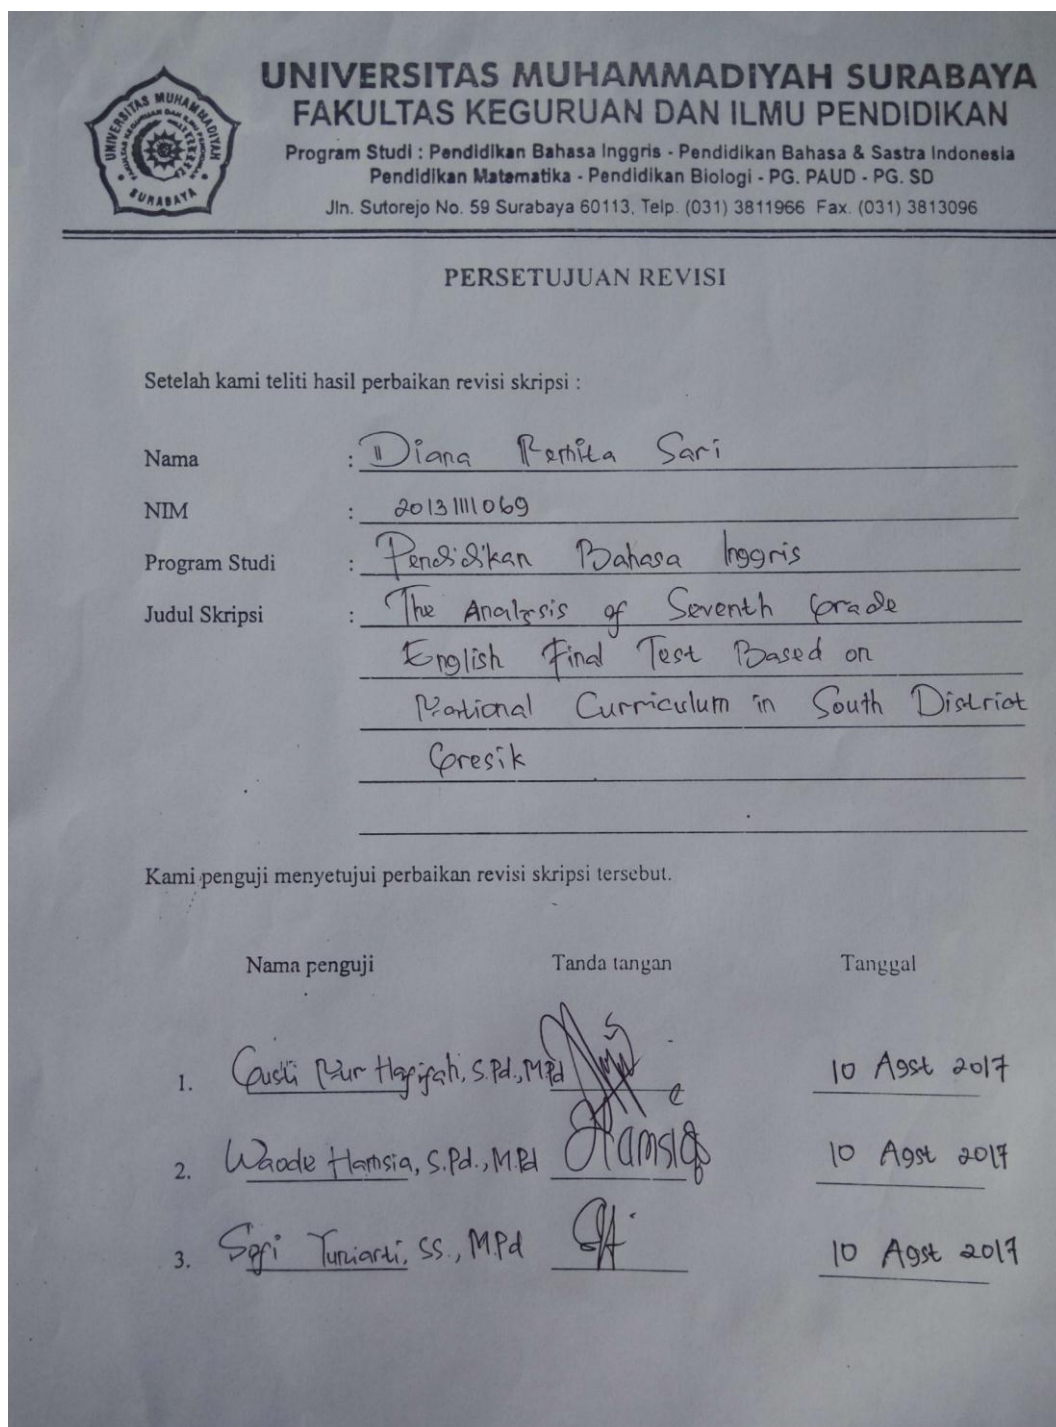 UNIVERSITAS MUHAMMADIYAH SURABAYA
FAKULTAS KEGURUAN DAN ILMU PENDIDIKAN
Program Studi : Pendidikan Bahasa Inggris - Pendidikan Bahasa & Sastra Indonesia
Pendidikan Matematika - Pendidikan Biologi - PG. PAUD - PG. SD
Jln. Sutorejo No. 59 Surabaya 60113, Telp. (031) 3811966 Fax. (031) 3813096
UNIVERSITAS MUHAMMADIYAH
SURABAYA
PERSETUJUAN REVISI
Setelah kami teliti hasil perbaikan revisi skripsi :
Nama : Diana Sari
NIM : 20131111069
Program Studi : Pendidikan Bahasa Inggris
Judul Skripsi : The Analysis of Seventh Grade
English Final Test Based on
National Curriculum in South District
Gresik
Kami penguji menyetujui perbaikan revisi skripsi tersebut.
Nama penguji Tanda tangan Tanggal
1. Gusti Nur Hafifah, S.Pd., M.Pd 10 Agst 2017
2. Waode Hamsia, S.Pd., M.Pd Hamsia 10 Agst 2017
3. Sofi Yuniarti, SS., M.Pd 10 Agst 2017